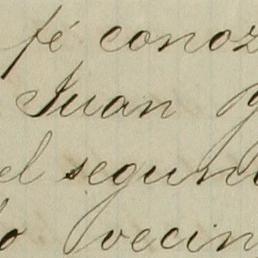 fé conoz
Juan
el segun
vecin